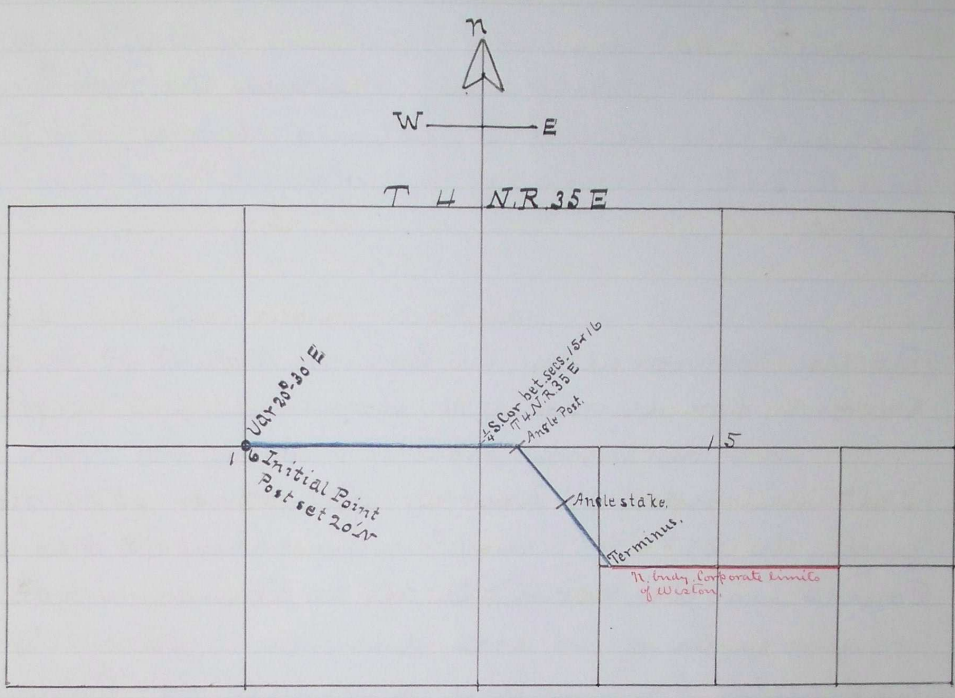 N
W E
T 4 N.R.35 E
Var 20°-30' E
¼ S. Cor bet. secs. 15 & 16
T4 N.R 35 E
Angle Post.
16
15
Initial Point
Post set 20' N
Angle stake.
Terminus.
N. Bndy. Corporate Limits
of Weston.